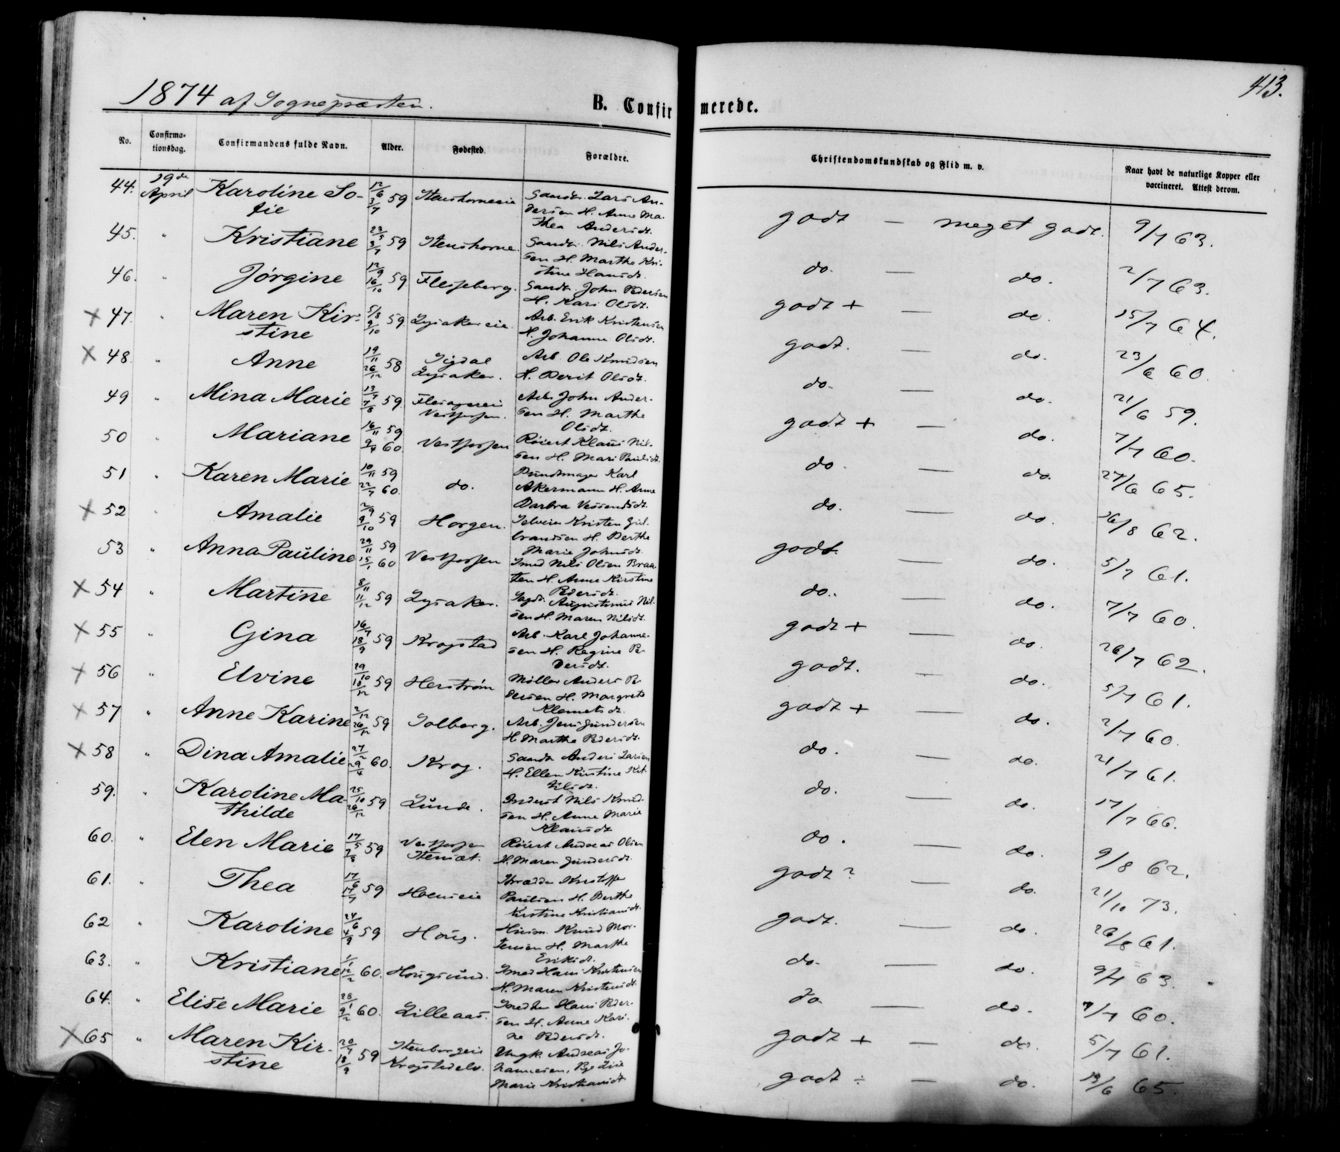 1874 af Sognepræsten.
B. Confirmerede.
413.
No.
Confirmationsdag.
Confirmandens fulde Navn.
Alder.
Fødested.
Forældre.
Christendomskundskab og Flid m. v.
Naar havt de naturlige Kopper eller vaccineret. Attest derom.
44. 19de April Karoline Sofie 59 Gaardbr. Lars Andersen H. Anne Mathea Andersdt. godt — meget godt. 9/7 63.
45. " Kristiane 59 Gaardbr. Nils Andersen H. Marthe Kristine Hansdt. do. — do. 2/7 63.
46. " Jørgine 59 Flesseberg. Gaardbr. John Pedersen H. Kari Olsdt. godt + — do. 15/7 64.
× 47. " Maren Kirstine 59 Lysakereie Arb. Erik Kristensen H. Johanne Olsdt. godt. — do. 23/6 60.
× 48 " Anne 19/11 58 Sigdal Lysaker. Arb. Ole Knudsen H. Berit Olsdt. do. — do. 21/6 59.
49 " Mina Marie 59 Vestfossen. Arb. John Andersen H. Marthe Olsdt. godt + — do. 7/7 60.
50 " Mariane 59 60 Vestfossen Klaus Nilsen H. Mari Paulsdt. do. — do. 27/6 65.
51 " Karen Marie 10/11 59 60 do. Bundtmager Karl Akermann H. Anne Barbra do. — do. 26/8 62.
× 52 " Amalie 59 Horgen. Selveier Kristen Gulbrandsen H. Berthe Marie Johnsdt. godt — do. 5/7 61.
53 " Anna Pauline 29/11 59 60 Vestfossen Smed Nils Olsen Braaten H. Anne Kirstine Pedersdt. do. — do. 7/7 60.
× 54 " Martine 8/11 11/12 59 Lysaker. Augustinus Nilsen H. Maren Nilsdt. godt + — do. 28/7 62.
× 55 " Gina 59 Krogstad Arb. Karl Johannesen H. Regine Pedersdt. godt. — do. 5/7 61.
× 56 " Elvine 29/10 59 Herstrøm Møller Anders Pedersen H. Margrete Klemetsdt. godt + — do. 2/7 60.
× 57 " Anne Karine 2/12 26/12 59 Solberg. Arb. Jens Gundersen H. Marthe Pedersdt. do. — do. 21/7 61.
× 58 " Dina Amalie 60 Krog. Gaardbr. Anders Larsen H. Ellen Kirstine do. — do. 17/7 66.
59. " Karoline Mathilde 25/10 26/12 59 Lunde. Nils Knudsen H. Anne Marie Klausdt. do. — do. 9/8 62.
60. " Elen Marie 17/5 59 Vestfossen Andreas Olsen H. Maren Gundersdt. godt? — do. 21/10 73.
61. " Thea 59 Skrædder Kristoffer Paulsen H. Berthe Kirstine Kristiansdt. godt. — do. 26/8 61.
62 " Karoline 59 Houg. Knud Mortensen H. Marthe Eriksdt. do. — do. 9/7 63.
63. " Kristiane 60. Hougsund. Smed Hans Kristensen H. Maren Kristensdt. do. — do. 60.
64. " Elise Marie 60. Lilleaas. Snedker Hans Pedersen H. Anne Karine Pedersdt. godt + — do. 5/7 61.
× 65 " Maren Kirstine 59 Krogstadelv. Ungk. Andreas Johannesen, Marie Kristiansdt. godt ÷ — do. 65.